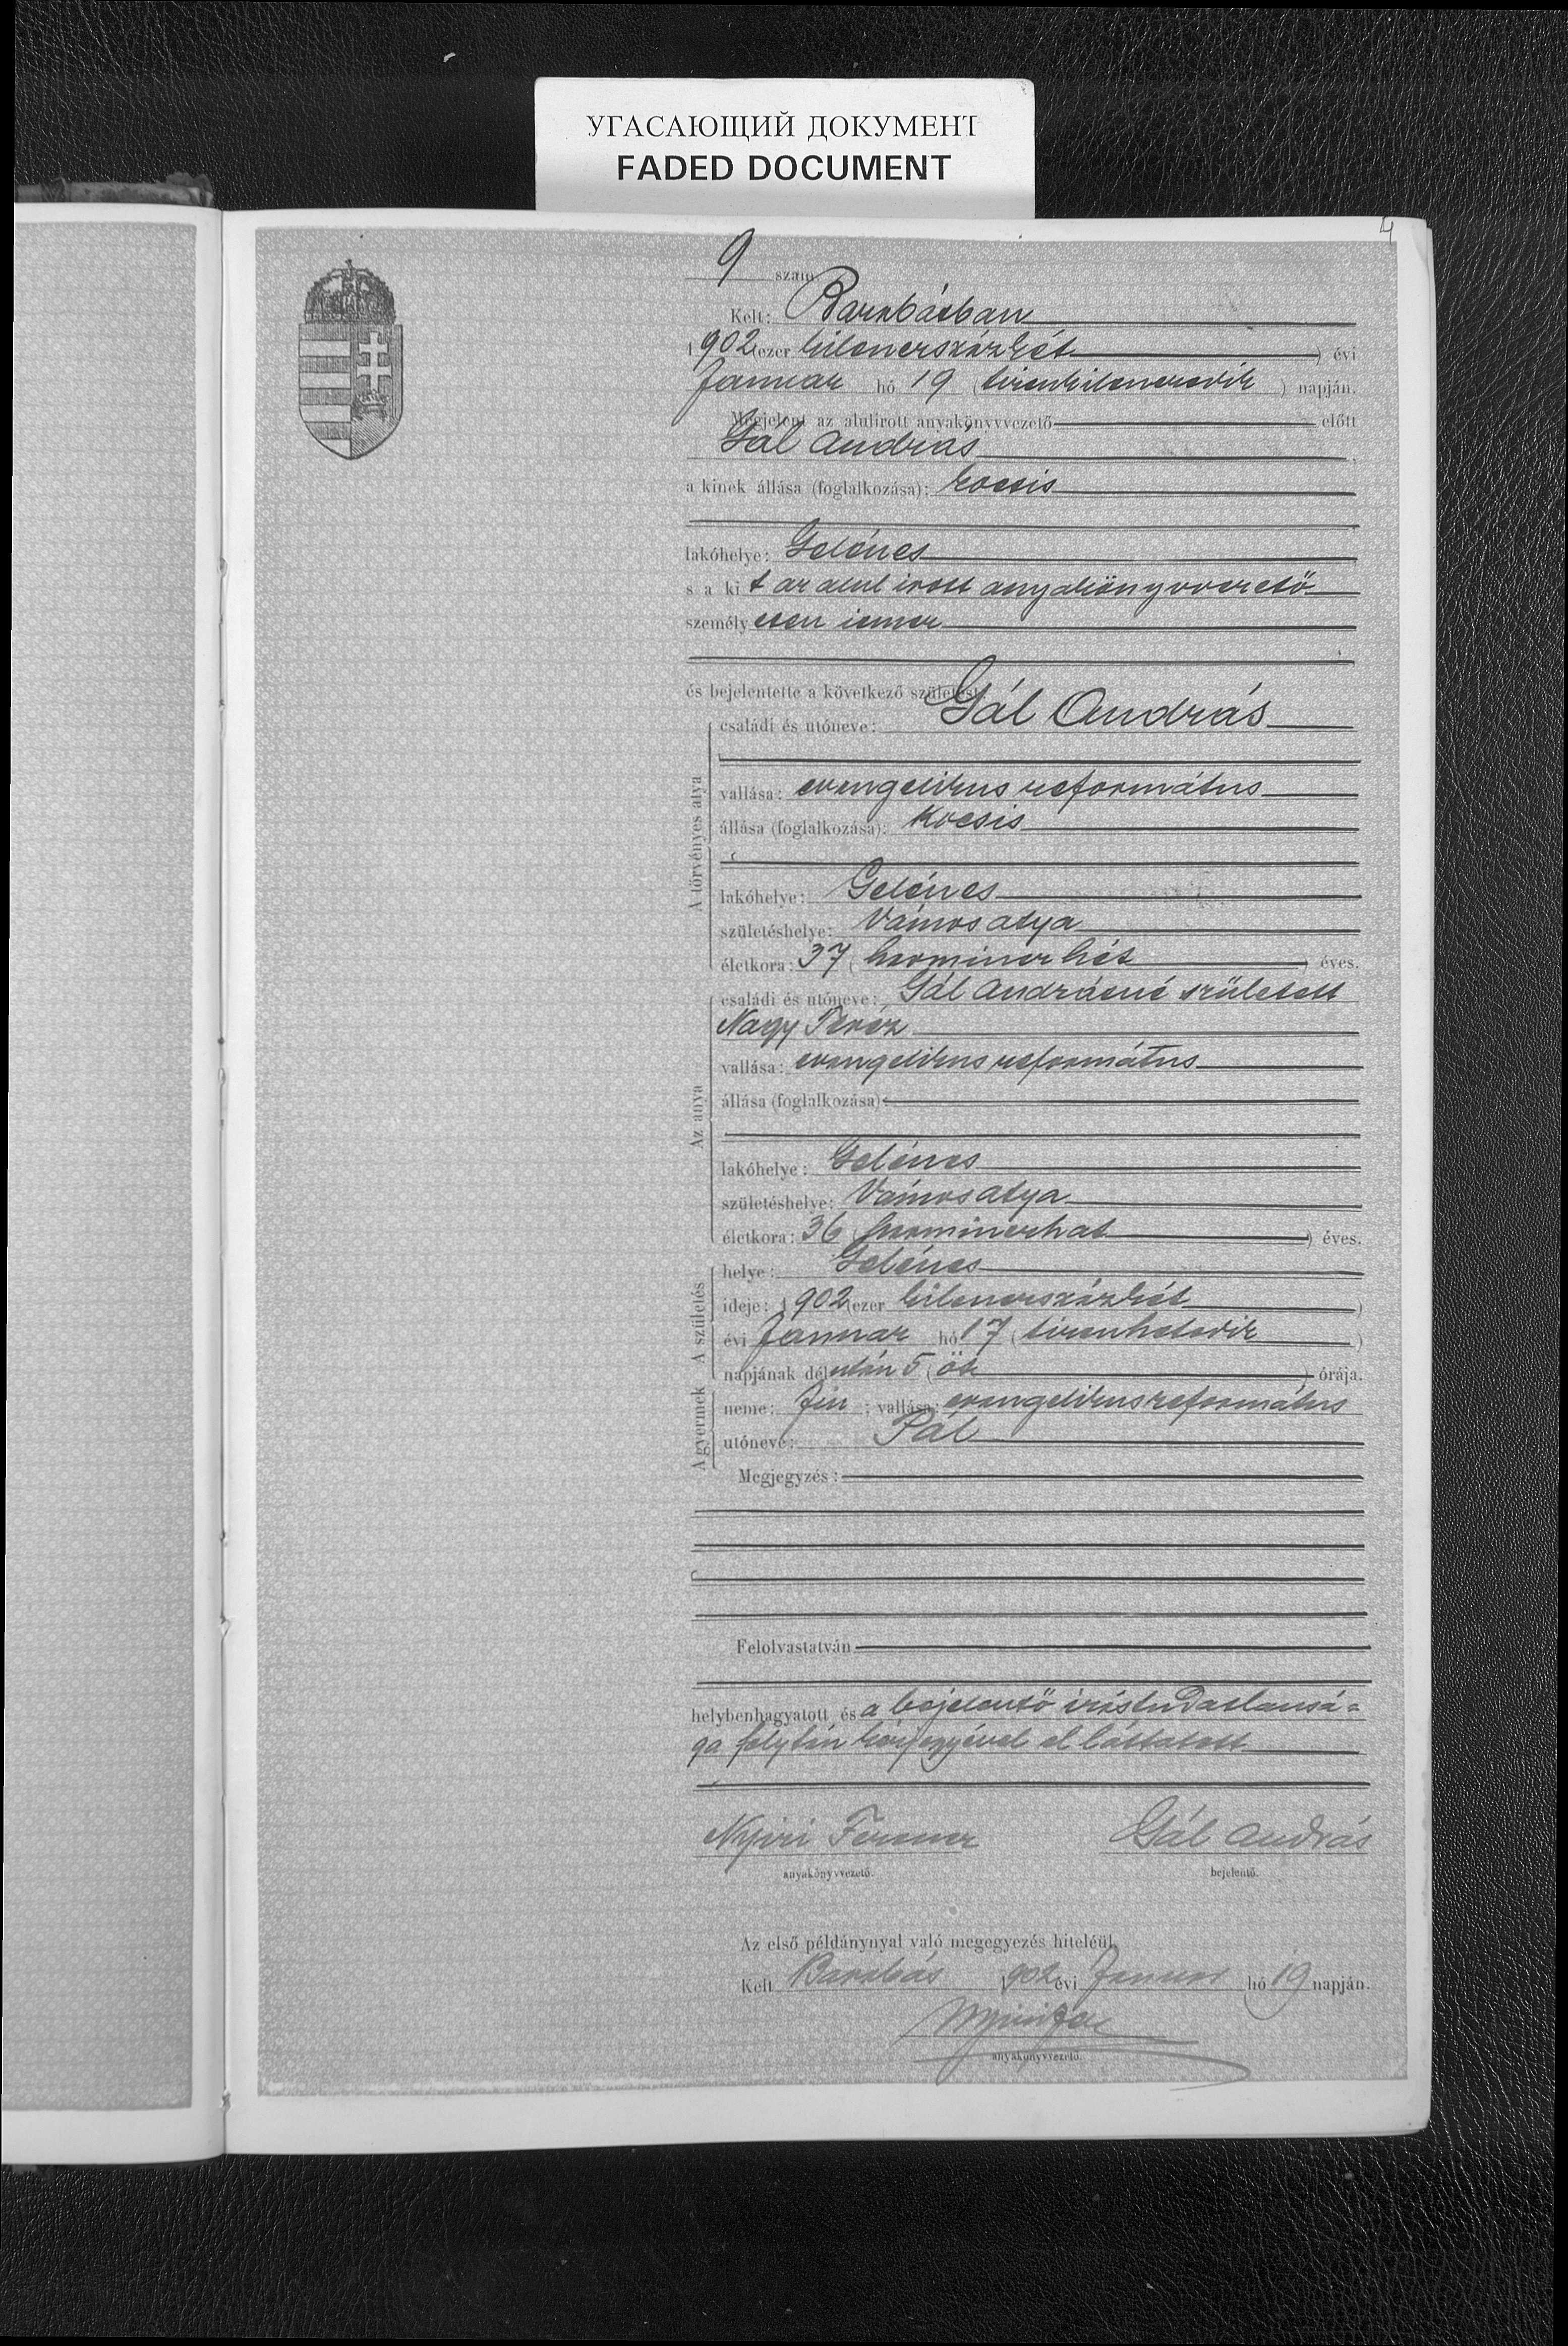 УГАСАЮЩИЙ ДОКУМЕНТ
FADED DOCUMENT
4
9 szám.
Kelt: Barabásban
1902 (ezer kilenczszázkét) évi
Januar hó 19 (tizenkilenczedik) napján.
Megjelent az alulirott anyakönyvvezető előtt
Gál András
a kinek állása (foglalkozása): kocsis
lakóhelye: Gelénes
s a kit az alul irott anyakönyvvezető
személyesen ismer
és bejelentette a következő születést:
A törvényes atya
családi és utóneve: Gál András
vallása: evangelikus református
állása (foglalkozása): kocsis
lakóhelye: Gelénes
születéshelye: Vámosatya
életkora: 37 (harminczhét) éves.
Az anya
családi és utóneve: Gál Andrásné született
Nagy Teréz
vallása: evangelikus református
állása (foglalkozása):
lakóhelye: Gelénes
születéshelye: Vámosatya
életkora: 36 (harminczhat) éves.
A születés
helye: Gelénes
ideje: 1902 (ezer kilenczszázkét)
évi Januar hó 17 (tizenhetedik)
napjának délután 5 (öt) órája.
A gyermek
neme: fiu; vallása: evangelikus református
utóneve: Pál
Megjegyzés:
Felolvastatván
helybenhagyatott és a bejelentő irástudatlansá=
ga folytán kézjegyével el láttatott
Nyiri Ferencz Gál András
anyakönyvvezető. bejelentő.
Az első példánynyal való megegyezés hiteléül.
Kelt Barabás 1902 évi Januar hó 19 napján.
anyakönyvvezető.